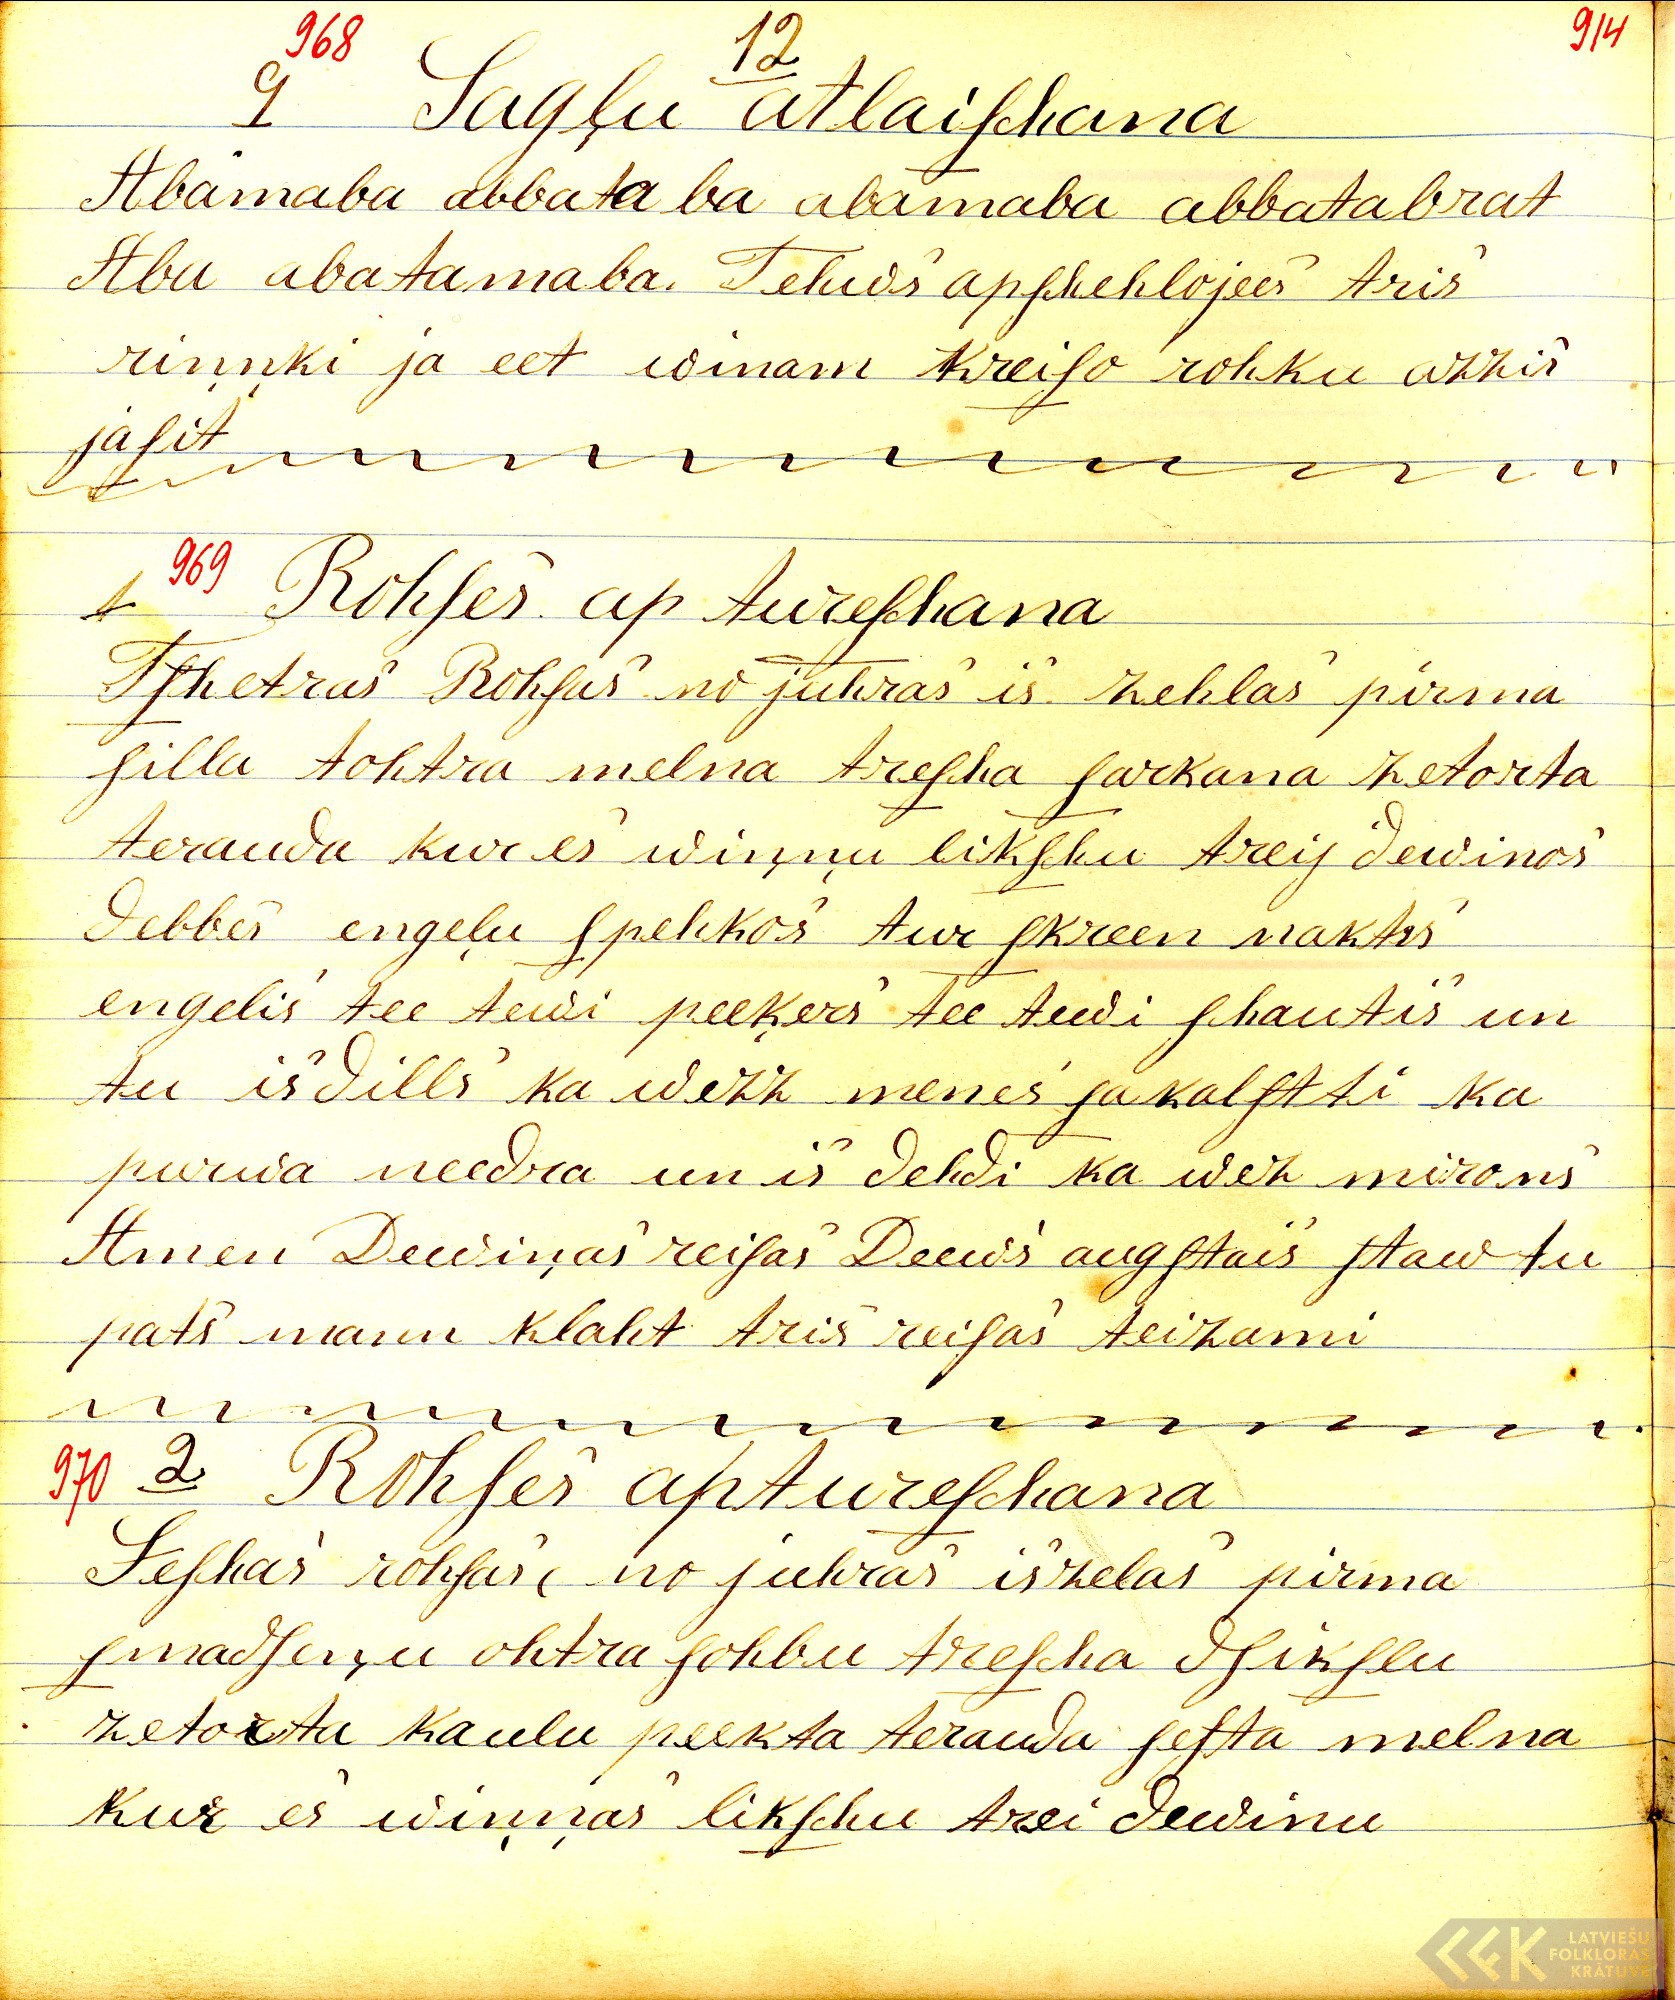 968 12 914
9 Sagļu atlaiſchana
Abamaba abbataba abamaba abbatabrat
Aba abatamaba. Tehws apſkehlojees tris
riņņki ja eet winam kreiſo rohku azzis
jaſit
969
1 Rohſes aptureſchana
Tſhetras Rohſas no juhras is zehlas pirma
ſilla tohtra melna treſcha ſarkana zetorta
terauda kur es wiņņu likſchu treij dewinos
debbes engeļu ſpehkos tur ſkreen nakts
engelis tee tewi peeķers tee tewi ſchautis un
tu isdills ka wezz menes ſakalſtti ka
purwa needra un is dehdi ka wez mirons
Amen Dewiņas reiſas Deews augſtais ſtaw tu
pats mann klaht tris reiſas teizami
970 2 Rohſes aptureſchana
Seſchas rohſas, no juhras iszelas pirma
ſmadſeņu ohtra ſohbu treſcha dſikſlu
zetorta kaulu peekta terauda ſeſta melna
kur es wiņņas likſchu trei dewinu
LATVIEŠU
FOLKLORAS
KRĀTUVE